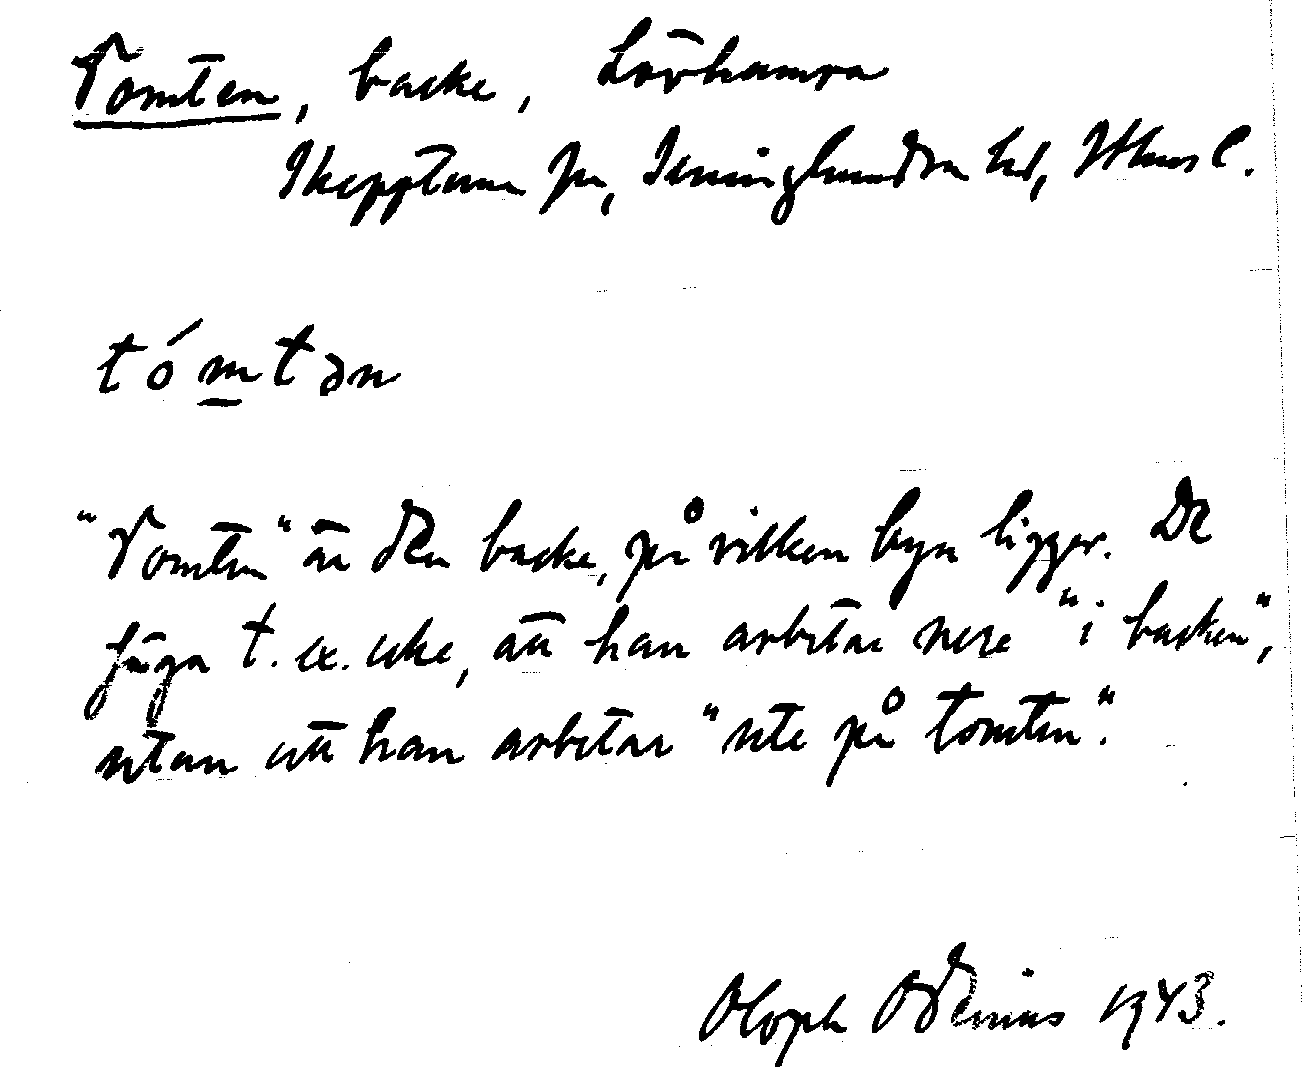 Tomten, backe, Lövhamra
Skepptuna sn, Seminghundra hd, Sthms l.
tómtən
"Tomten" är den backe, på vilken byn ligger. De
säga t. ex. icke, att han arbetar nere "i backen",
utan att han arbetar "ute på tomten".
Oloph Odenius 1943.